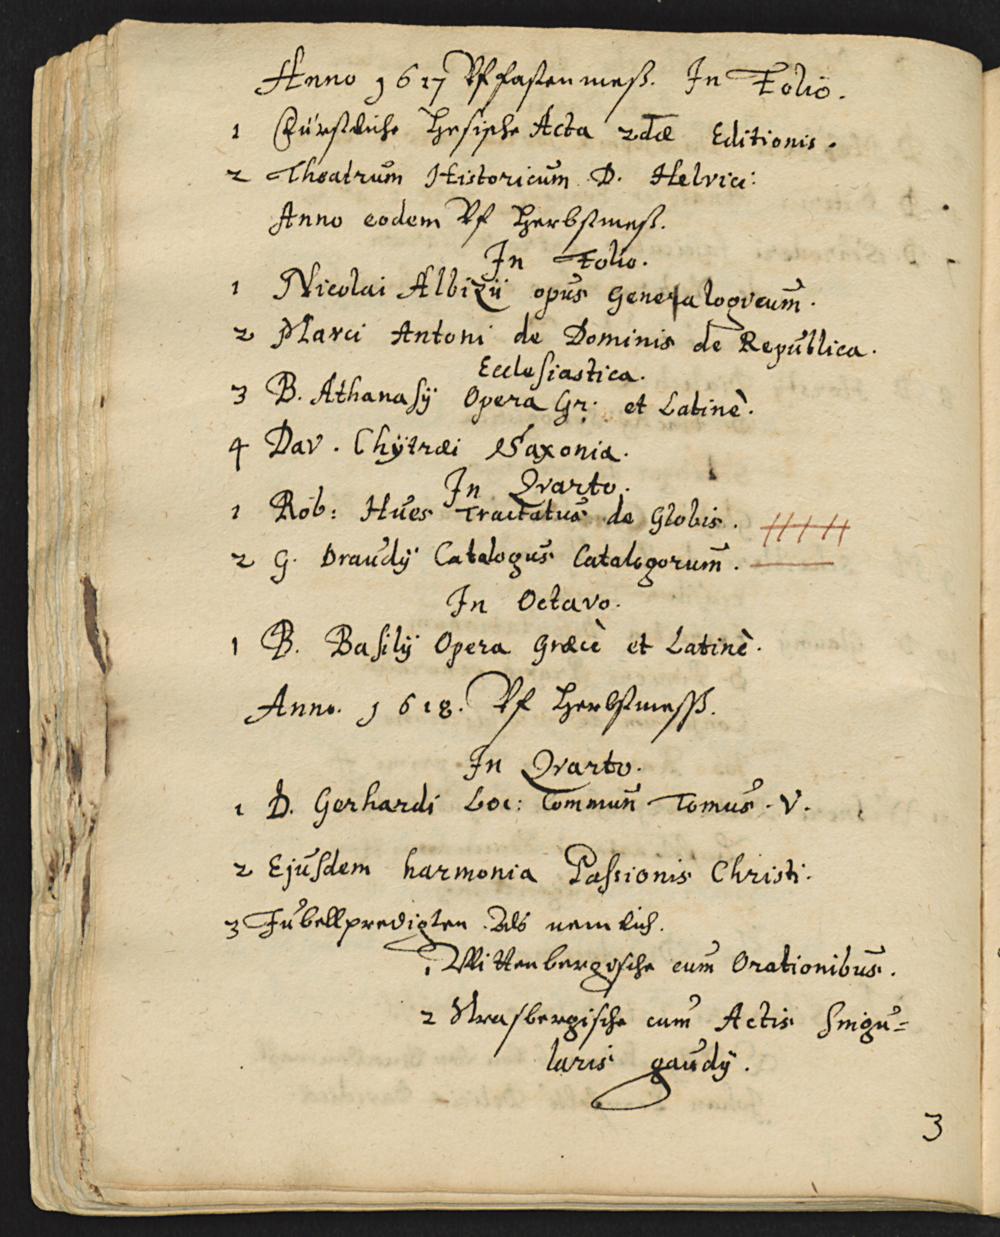 Anno 1617 Vf fastenmeß. In Folio.
1 Fürstliche Hesische Acta 2dæ Editionis.
2 Theatrum Historicum D. Helvici:
Anno eodem Vf Herbstmeß.
In Folio.
1 Nicolai Albizij opus Genealogicum.
2 Marci Antoni de Dominis de Republica.
Ecclesiastica.
3 B. Athanasij Opera Gr: et Latinè.
4 Dav. Chÿtræi Saxonia.
In Qvarto.
1 Rob: Hues Tractatus de Globis.
2 G. Draudij Catalogus Catalogorum.
In Octavo.
1 B. Basilij Opera Græcè et Latinè.
Anno. 1618. Vf Herbstmesß.
In Qvarto.
1 D. Gerhardi Loc: Commun Tomus. V.
2 Ejusdem harmonia Passionis Christi.
3 Jubellpredigten. Als nemlich.
1 Wittenbergische cum Orationibus.
2 Strasbergische cum Actis singu=
laris gaudij.
3